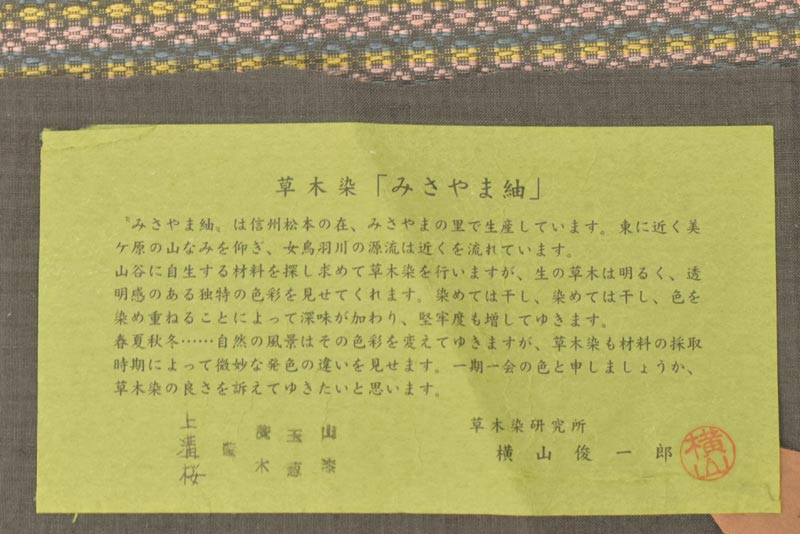 草木染「みさやま紬」
〝みさやま紬〟は信州松本の在、みさやまの里で生産しています。東に近く美
ケ原の山なみを仰ぎ、女鳥羽川の源流は近くを流れています。
山谷に自生する材料を探し求めて草木染を行いますが、生の草木は明るく、透
明感のある独特の色彩を見せてくれます。染めては干し、染めては干し、色を
染め重ねることによって深味が加わり、堅牢度も増してゆきます。
春夏秋冬……自然の風景はその色彩を変えてゆきますが、草木染も材料の採取
時期によって微妙な発色の違いを見せます。一期一会の色と申しましょうか、
草木染の良さを訴えてゆきたいと思います。
山漆
上溝桜
草木染研究所
横山俊一郎
横山